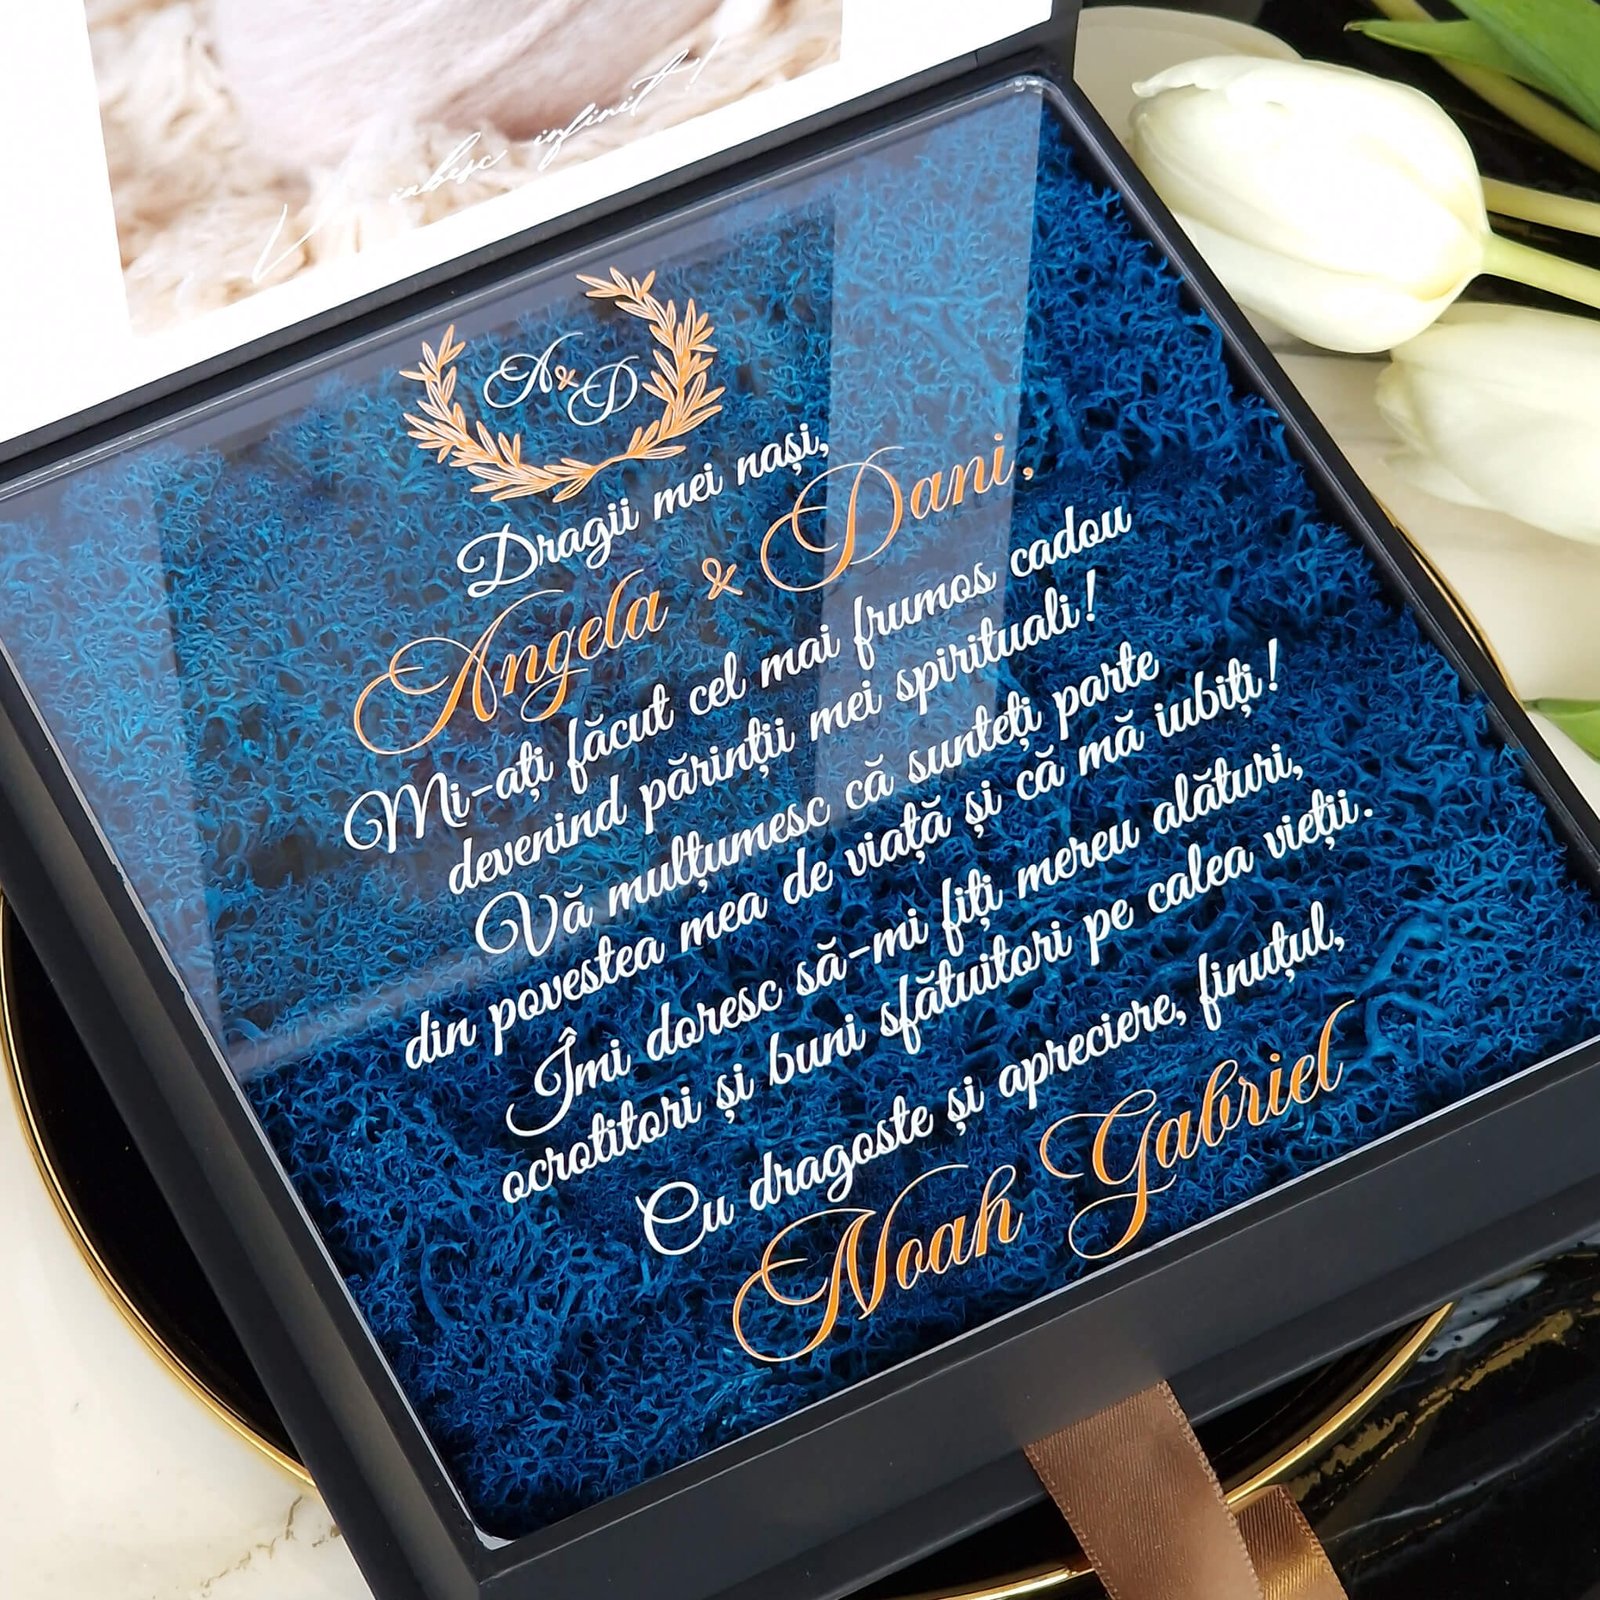 Vă iubesc infinit!
A & D
Dragii mei nași,
Angela & Dani,
Mi-ați făcut cel mai frumos cadou
devenind părinții mei spirituali!
Vă mulțumesc că sunteți parte
din povestea mea de viață și că mă iubiți!
Îmi doresc să-mi fiți mereu alături,
ocrotitori și buni sfătuitori pe calea vieții.
Cu dragoste și apreciere, finuțul,
Noah Gabriel